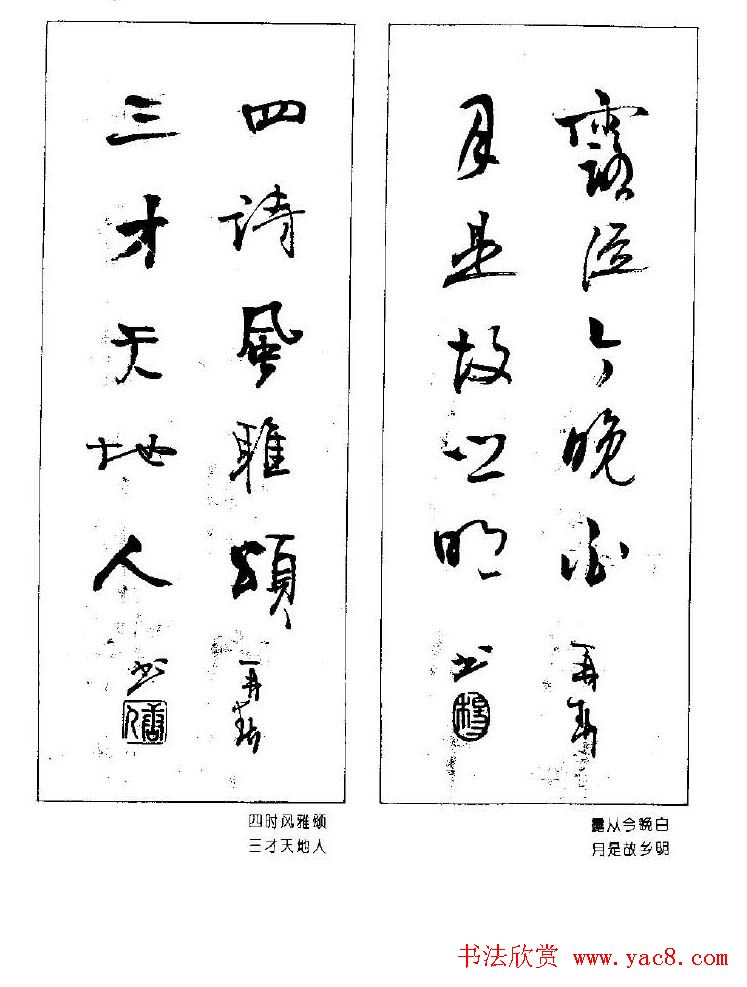 露從今晚白
月是故鄉明
書
四詩風雅頌
三才天地人
書
四时风雅颂
三才天地人
露从今晚白
月是故乡明
书法欣赏 www.yac8.com